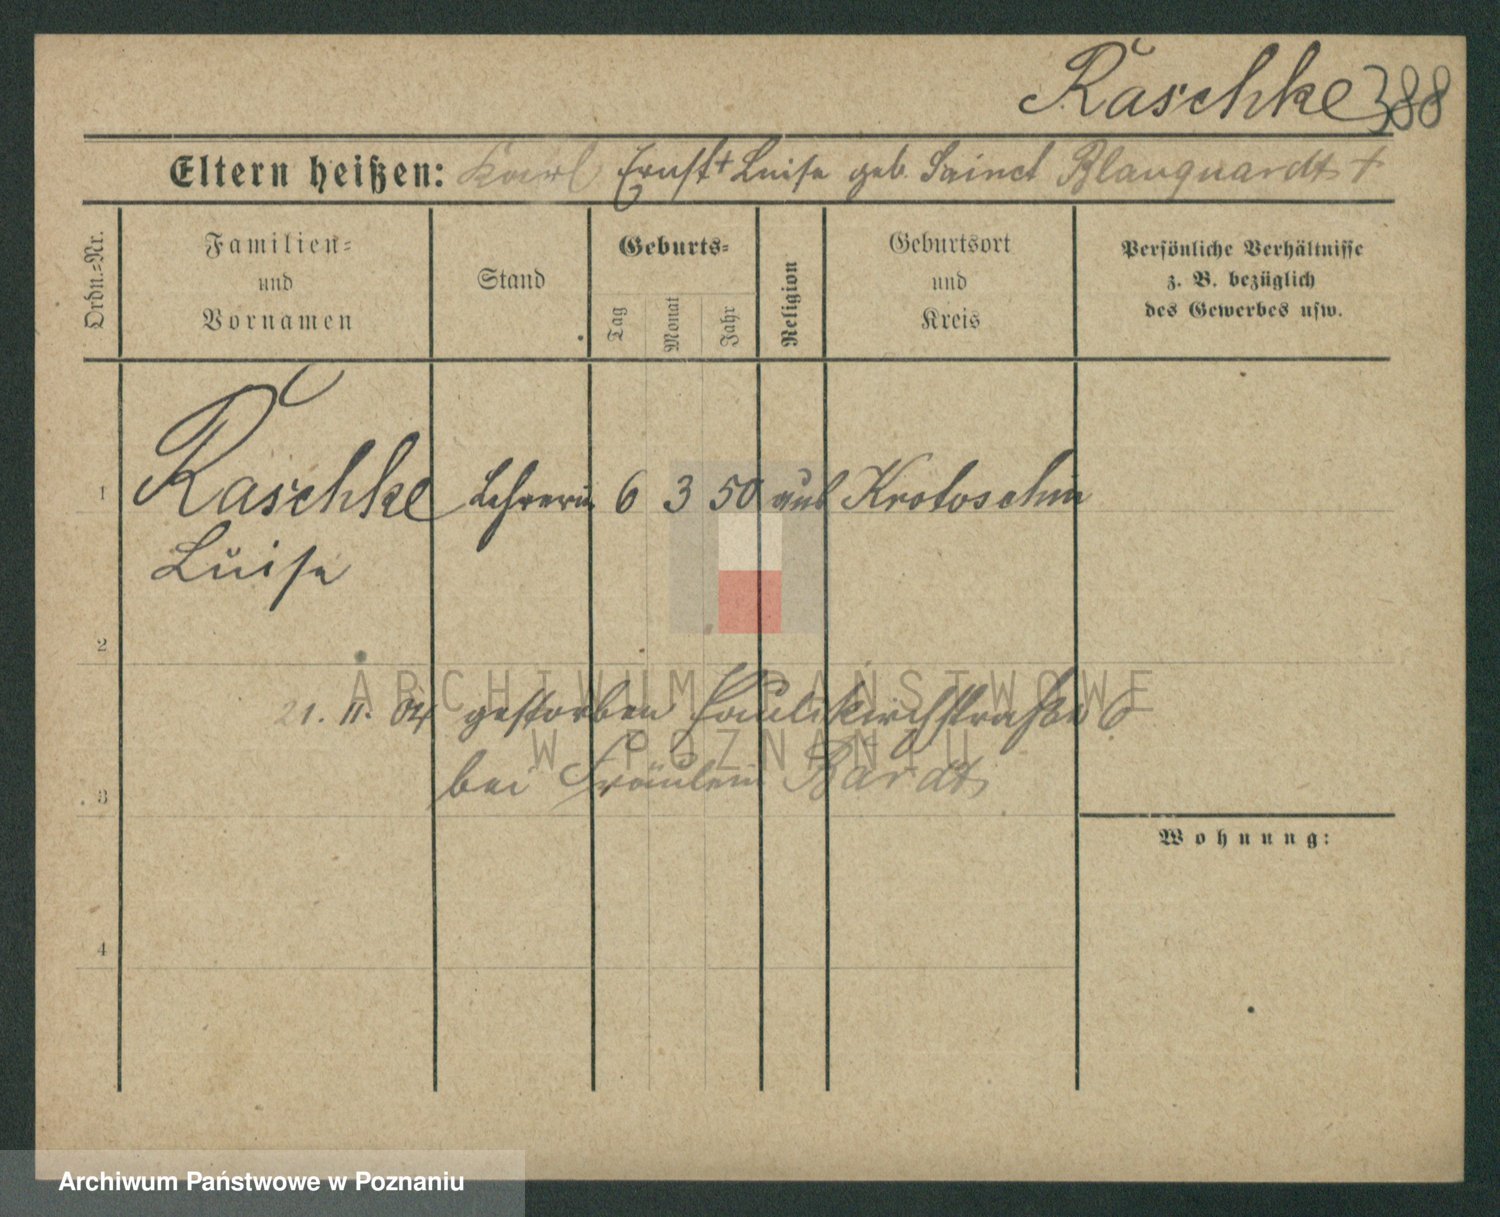 Raschke 388
Eltern heißen: Karl Ernst † Luise geb. Sainct Blanquardt †
Ordn.=Nr.
Familien= und Vornamen
Stand
Geburts=
Tag
Monat
Jahr
Religion
Geburtsort und Kreis
Persönliche Verhältnisse
z. B. bezüglich
des Gewerbes usw.
1 Raschke Lehrerin 6 3 50 Krotoschin
Luise
2
21. 11. 04 gestorben Paulikirchstraße 6
bei Fräulein Bardt
3
Wohnung:
4
ARCHIWUM PAŃSTWOWE
W POZNANIU
Archiwum Państwowe w Poznaniu